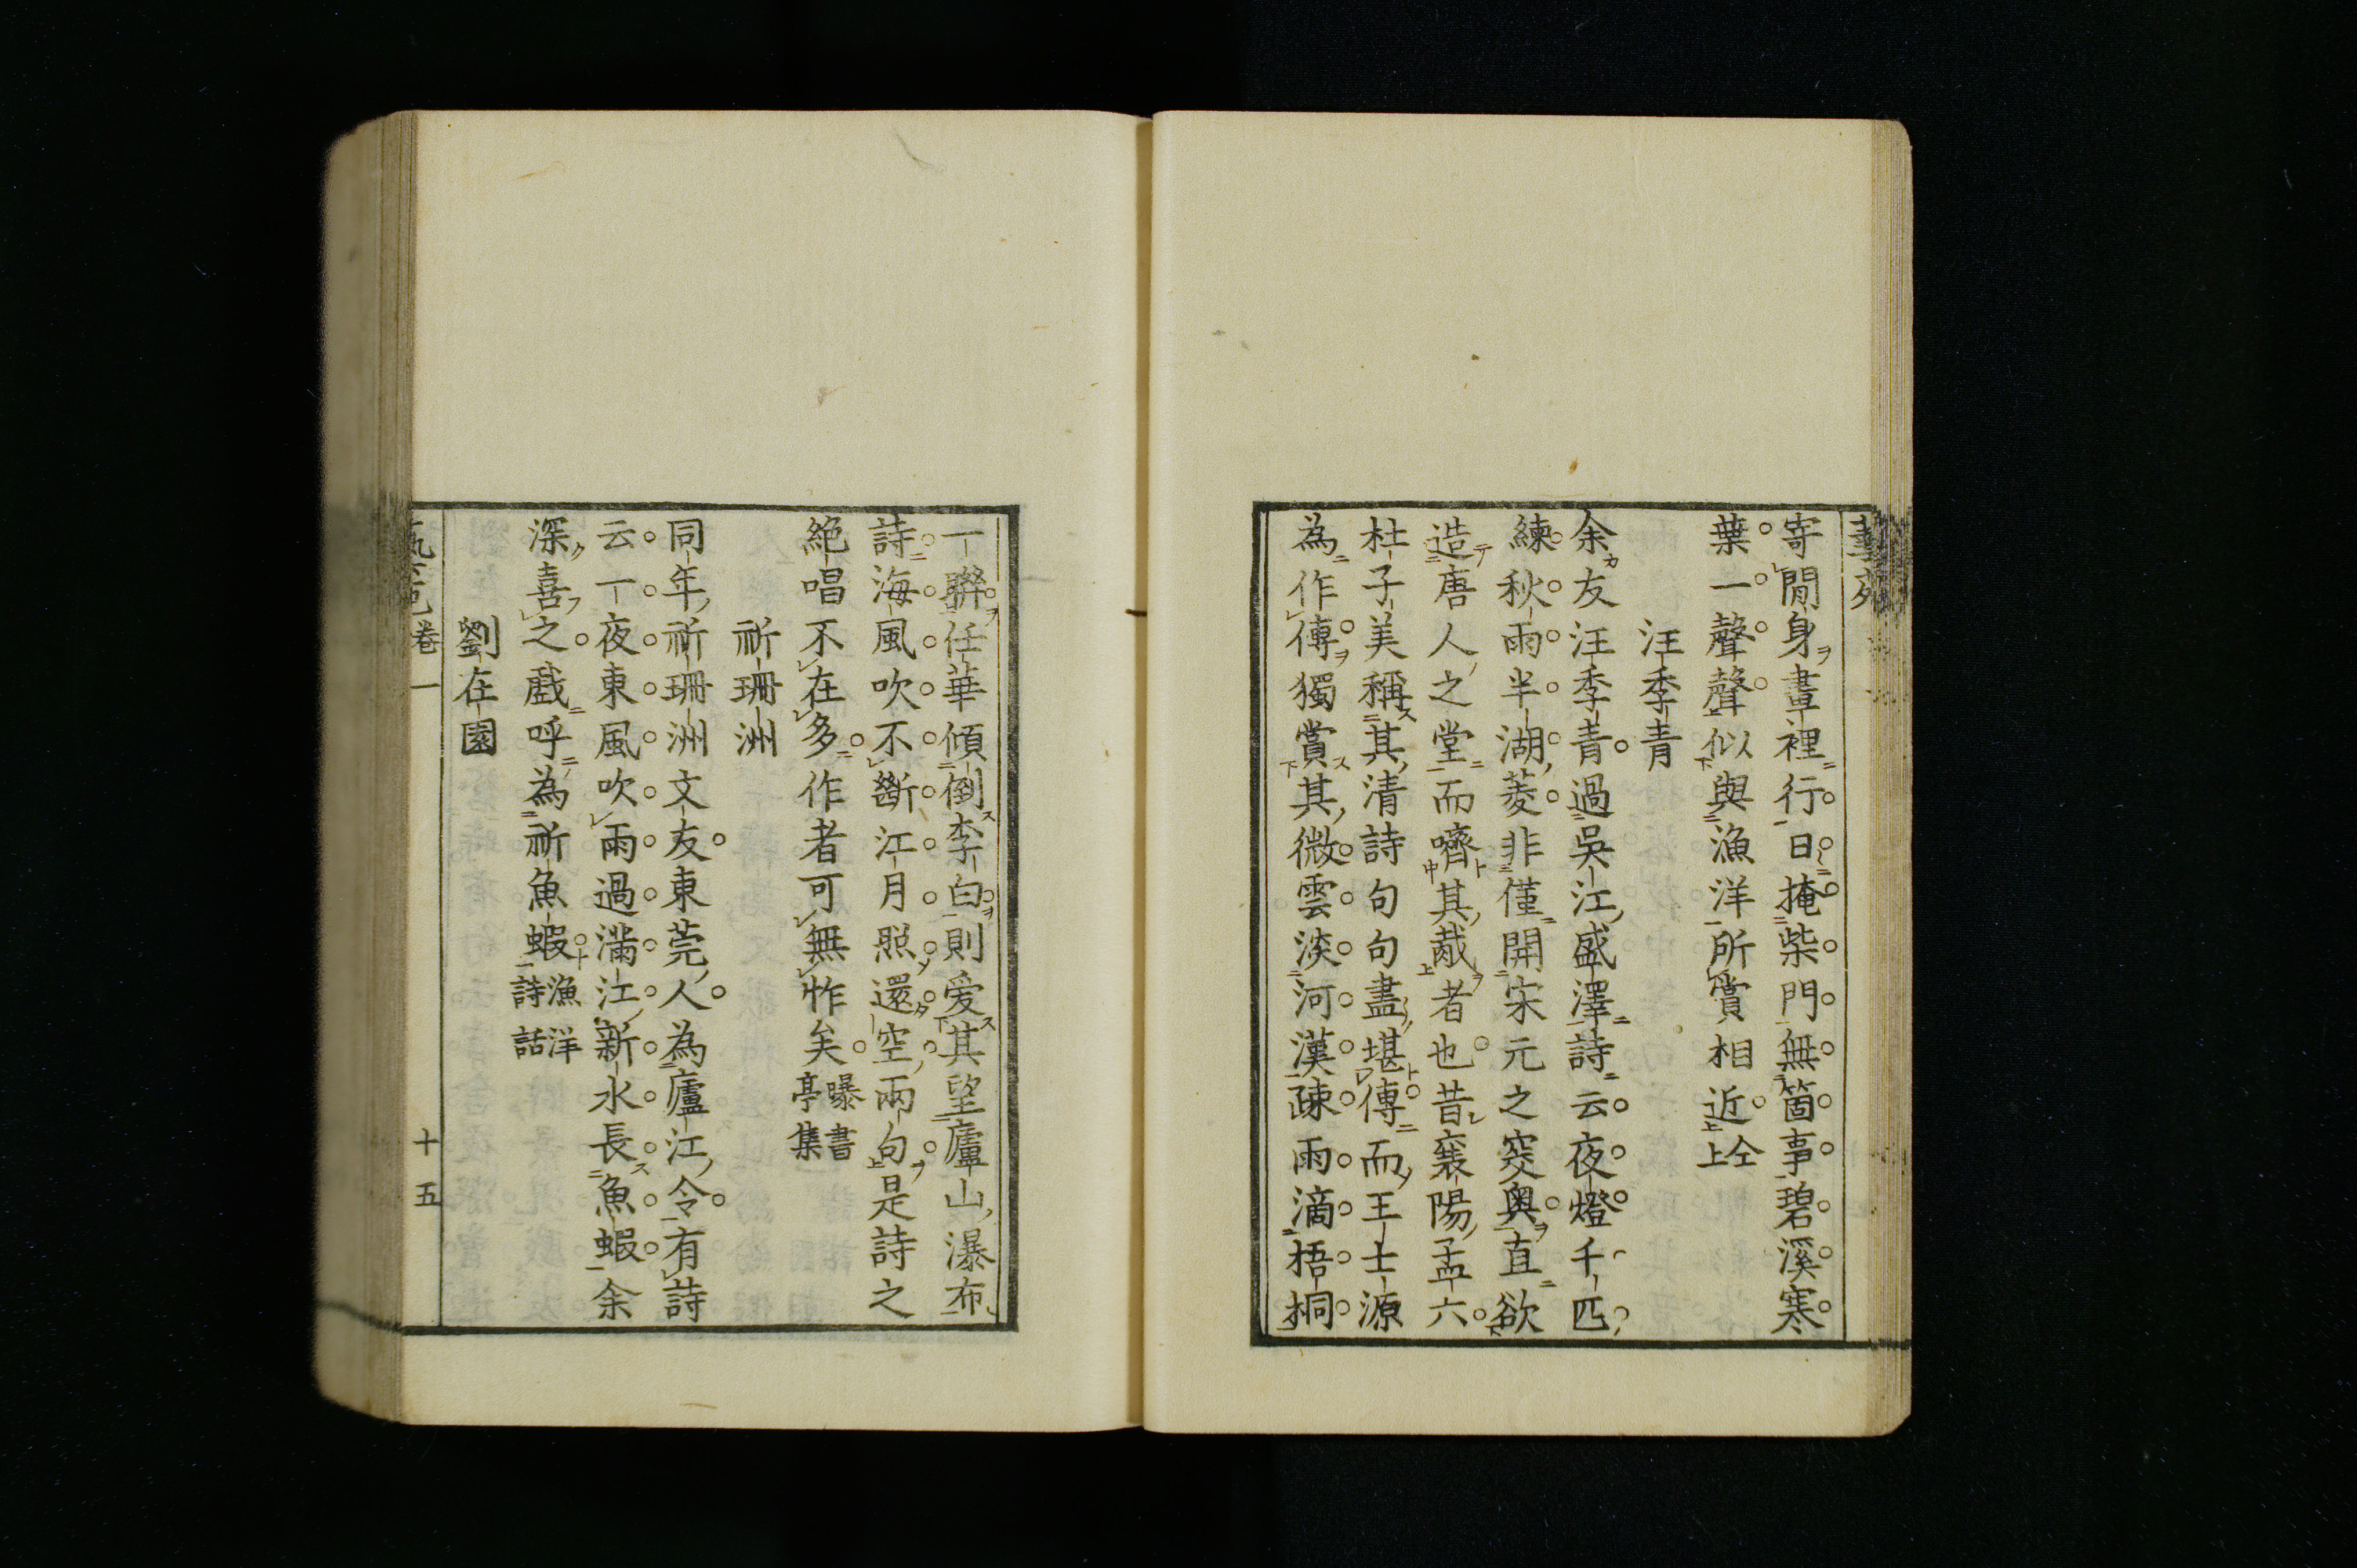 寄閒身畫裡行日掩柴門無箇事碧溪寒
葉一聲聲似與漁洋所賞相近仝上
汪季青
余友汪季青過吳江盛澤詩云夜燈千匹
練秋雨半湖菱非僅開宋元之突奧直欲
造唐人之堂而嚌其胾者也昔襄陽孟六
杜子美稱其清詩句句盡堪傳而王士源
為作傳獨賞其微雲淡河漢疎雨滴梧桐
一聯任華傾倒李白則愛其望廬山瀑布
詩海風吹不斷江月照還空兩句是詩之
絕唱不在多作者可無怍矣曝書亭集
祈珊洲
同年祈珊洲文友東莞人為廬江令有詩
云一夜東風吹雨過滿江新水長魚蝦余
深喜之戲呼為祈魚蝦漁洋詩話
劉在園
卷一
十五